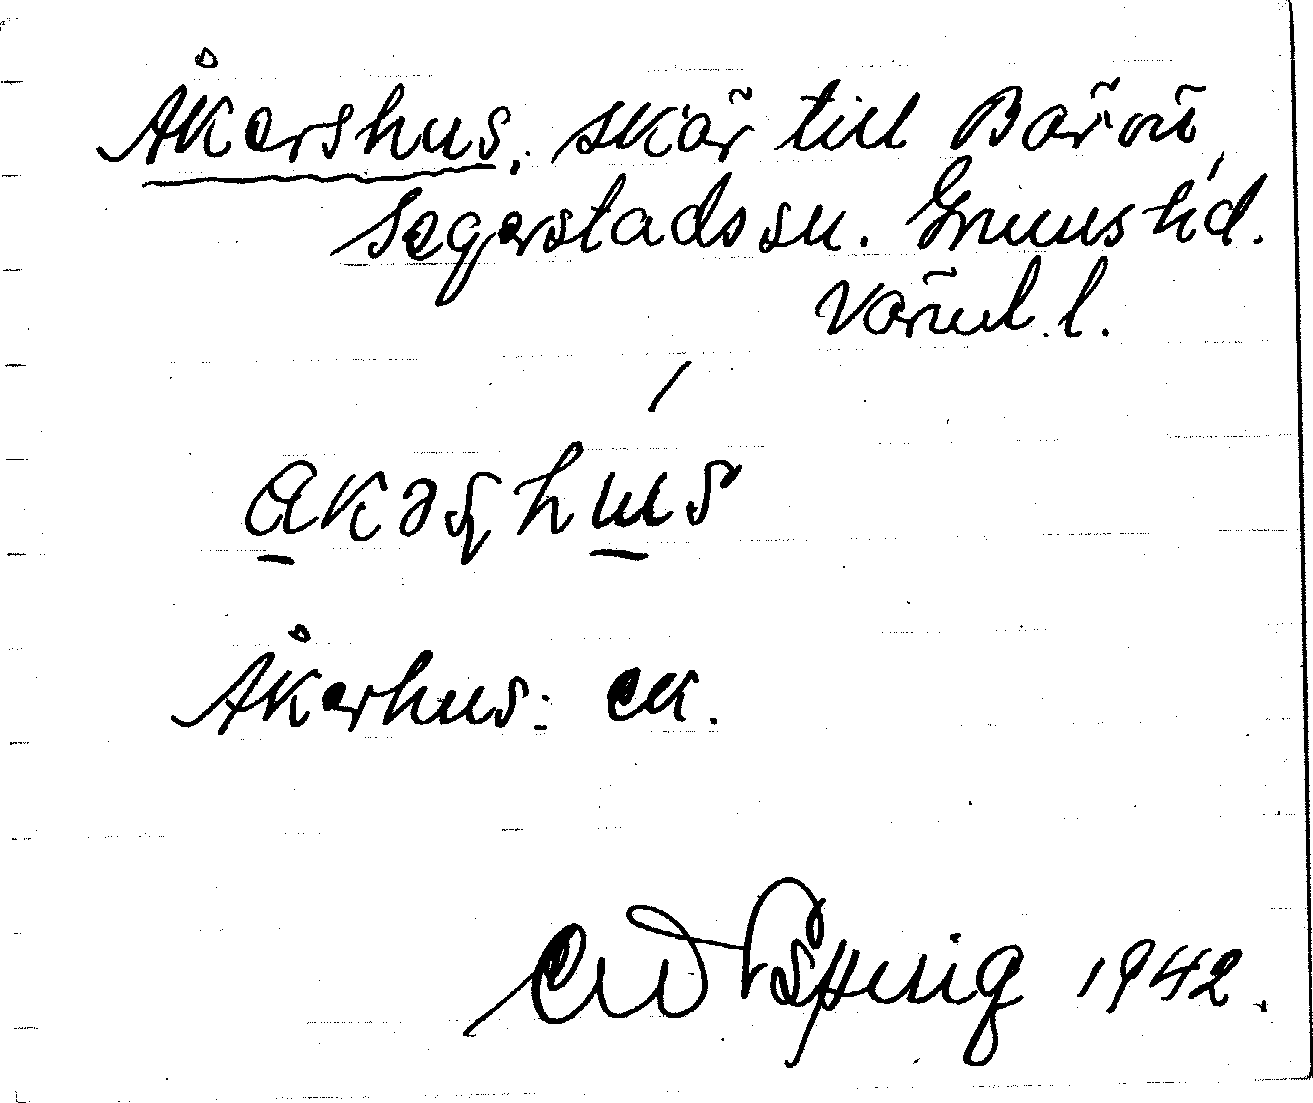 Åkershus, skär till Bärön,
Segerstads sn. Grums hd.
Värml. l.
akəʂhus
Åkerhus: ek.
1942.